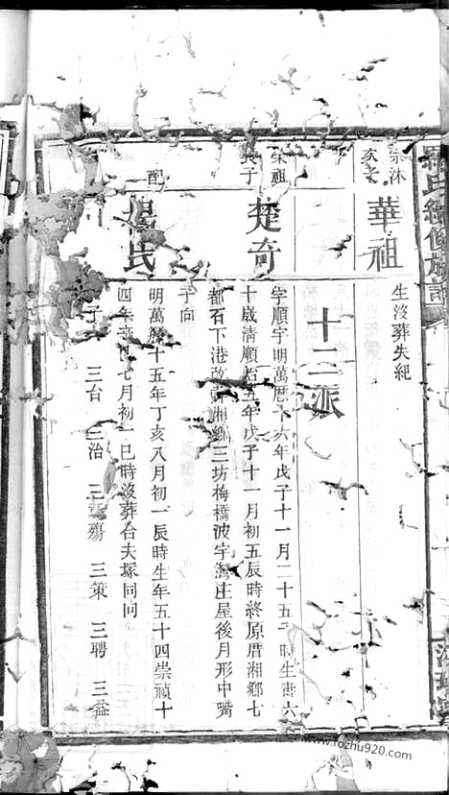 氏續修族譜
宗沐
次子
華祖
生歿葬失紀
十二派
宗祖
長子
楚奇
字順宇明萬曆十六年戊子十一月二十五 時生壽六
十歲清順治五年戊子十一月初五辰時終原厝湘鄉七
都石下港改 湘 三坊梅橋波宇灣庄屋後月形中嘴
子向
配
楊氏
明萬曆十五年丁亥八月初一辰時生年五十四崇禎十
四年辛 七月初一巳時歿葬合夫塚同向
子 三台 三治 三 殤 三策 三聘 三益
www.fozhu920.com